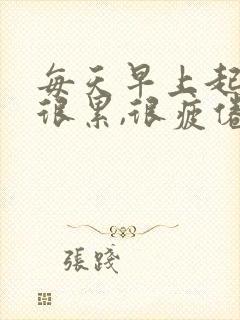 每天早上起
很累,很疲倦
張踐